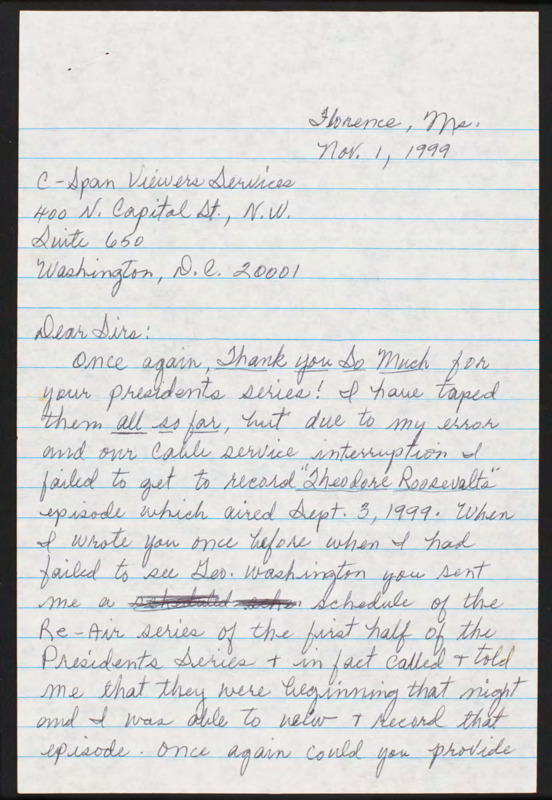 Florence, Ms.
Nov. 1, 1999
C-Span Viewers Services
400 N. Capital St., N.W.
Suite 650
Washington, D.C. 20001
Dear Sirs:
Once again, Thank you So Much for
your presidents series! I have taped
them all so far, but due to my error
and our Cable service interruption I
failed to get to record "Theodore Roosevelts"
episode which aired Sept. 3, 1999. When
I wrote you once before when I had
failed to see Geo. Washington you sent
me a schedule of the
Re-Air series of the first half of the
Presidents Series + in fact called + told
me that they were beginning that night
and I was able to veiw + record that
episode. Once again could you provide